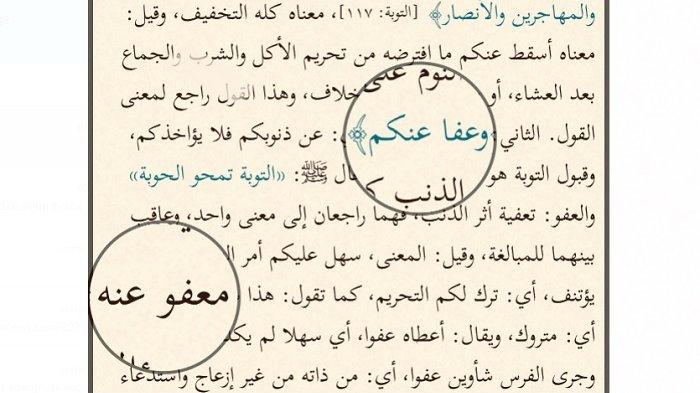 والمهاجرين والأنصار﴾ [التوبة: ١١٧]، معناه كله التخفيف، وقيل:
معناه أسقط عنكم ما افترضه من تحريم الأكل والشرب والجماع
بعد العشاء، أو النوم على خلاف، وهذا القول راجع لمعنى
القول. الثاني ﴿وعفا عنكم﴾: عن ذنوبكم فلا يؤاخذكم،
وقبول التوبة هو الذنب قال ﷺ: «التوبة تمحو الحوبة»
والعفو: تعفية أثر الذنب، فهما راجعان إلى معنى واحد، وعاقب
بينهما للمبالغة، وقيل: المعنى، سهل عليكم أمر
يؤتنف، أي: ترك لكم التحريم، كما تقول: هذا معفو عنه
أي: متروك، ويقال: أعطاه عفوا، أي سهلا لم
وجرى الفرس شأوين عفوا، أي: من ذاته من غير إزعاج واستدعاء